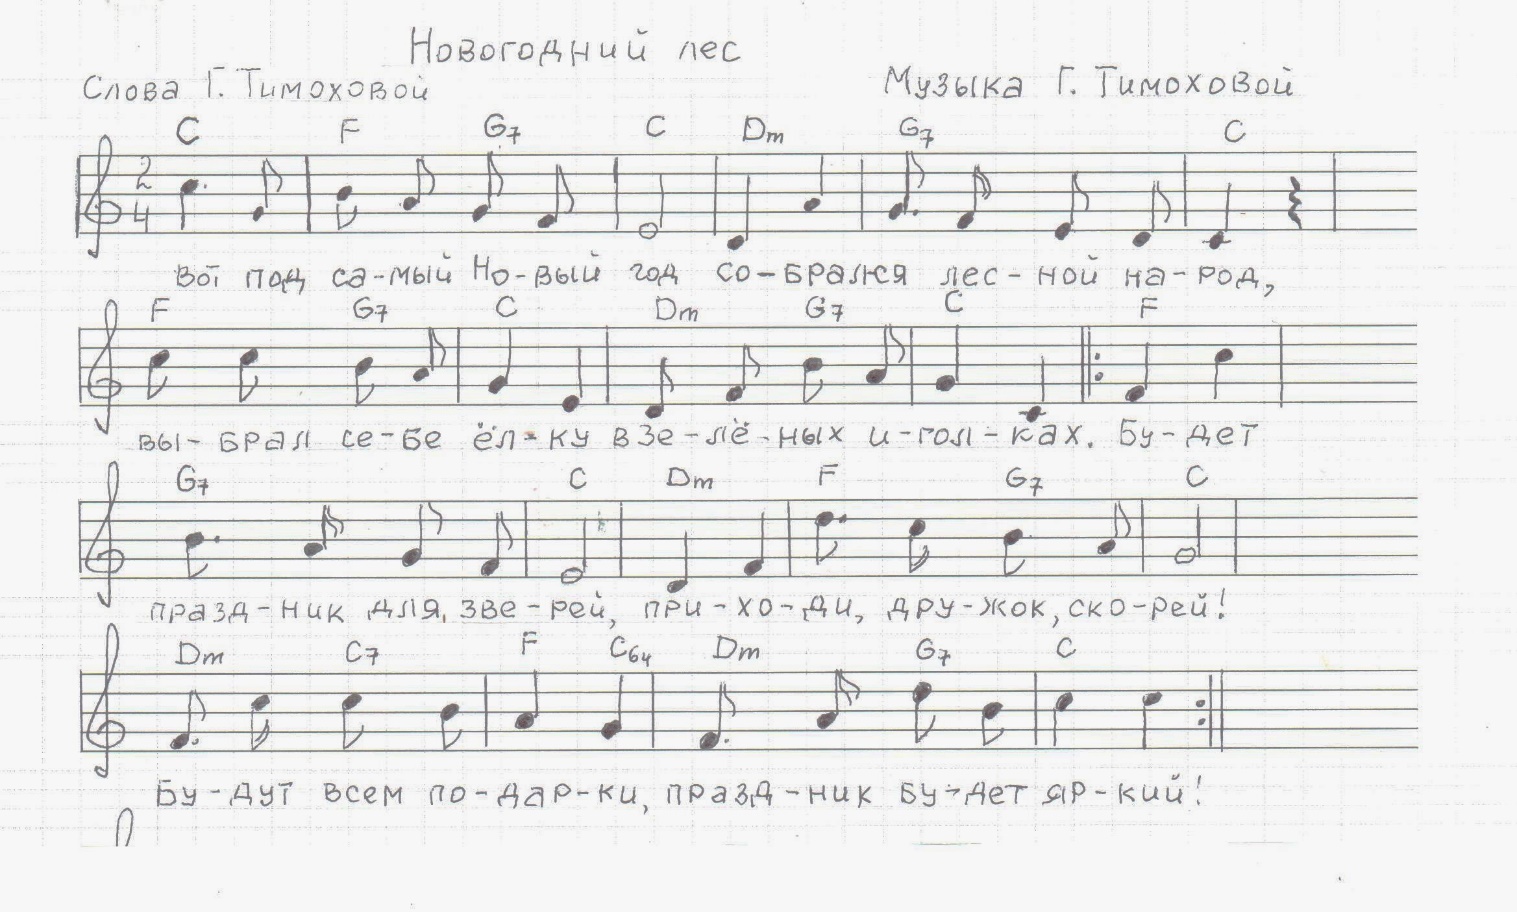 Новогодний лес
Слова Г. Тимоховой Музыка Г. Тимоховой
C F G7 C Dm G7 C
2
4
Вот под са-мый Но-вый год со-брался лес-ной на-род,
F G7 C Dm G7 C F
вы-брал се-бе ёл-ку в зе-лё-ных и-гол-ках. Бу-дет
G7 C Dm F G7 C
празд-ник для зве-рей, при-хо-ди, дру-жок, ско-рей!
Dm C7 F C64 Dm G7 C
Бу-дут всем по-дар-ки, празд-ник бу-дет яр-кий!